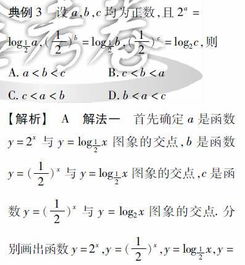 典例 3 设 a,b,c 均为正数,且 2^a =
log_{1/2}a,(1/2)^b = log_{1/2}b,(1/2)^c = log_2c,则
A. a < b < c B. c < b < a
C. c < a < b D. b < a < c
【解析】 A 解法一 首先确定 a 是函数
y = 2^x 与 y = log_{1/2}x 图象的交点,b 是函数
y = (1/2)^x 与 y = log_{1/2}x 图象的交点,c 是函
数 y = (1/2)^x 与 y = log_2x 图象的交点. 分
别画出函数 y = 2^x,y = (1/2)^x,y = log_{1/2}x,y =